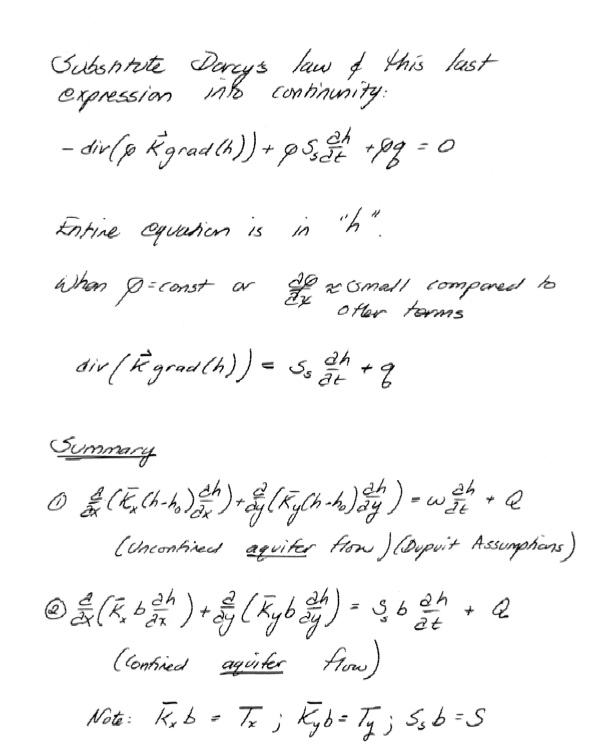 Substitute Darcy's law & this last
expression into continunity:
- div(ρ K⃗ grad(h)) + ρ Sₛ ∂h/∂t + ρq = 0
Entire equation is in "h".
When ρ = const or ∂ρ/∂x ≈ small compared to
other terms
div(K⃗ grad(h)) = Sₛ ∂h/∂t + q
Summary
① ∂/∂x (K̄ₓ(h-h₀) ∂h/∂x) + ∂/∂y (K̄y(h-h₀) ∂h/∂y) = ω ∂h/∂t + Q
(Unconfined aquifer flow) (Dupuit Assumptions)
② ∂/∂x (K̄ₓ b ∂h/∂x) + ∂/∂y (K̄y b ∂h/∂y) = Sₛ b ∂h/∂t + Q
(Confined aquifer flow)
Note: K̄ₓ b = Tₓ ; K̄y b = Ty ; Sₛ b = S